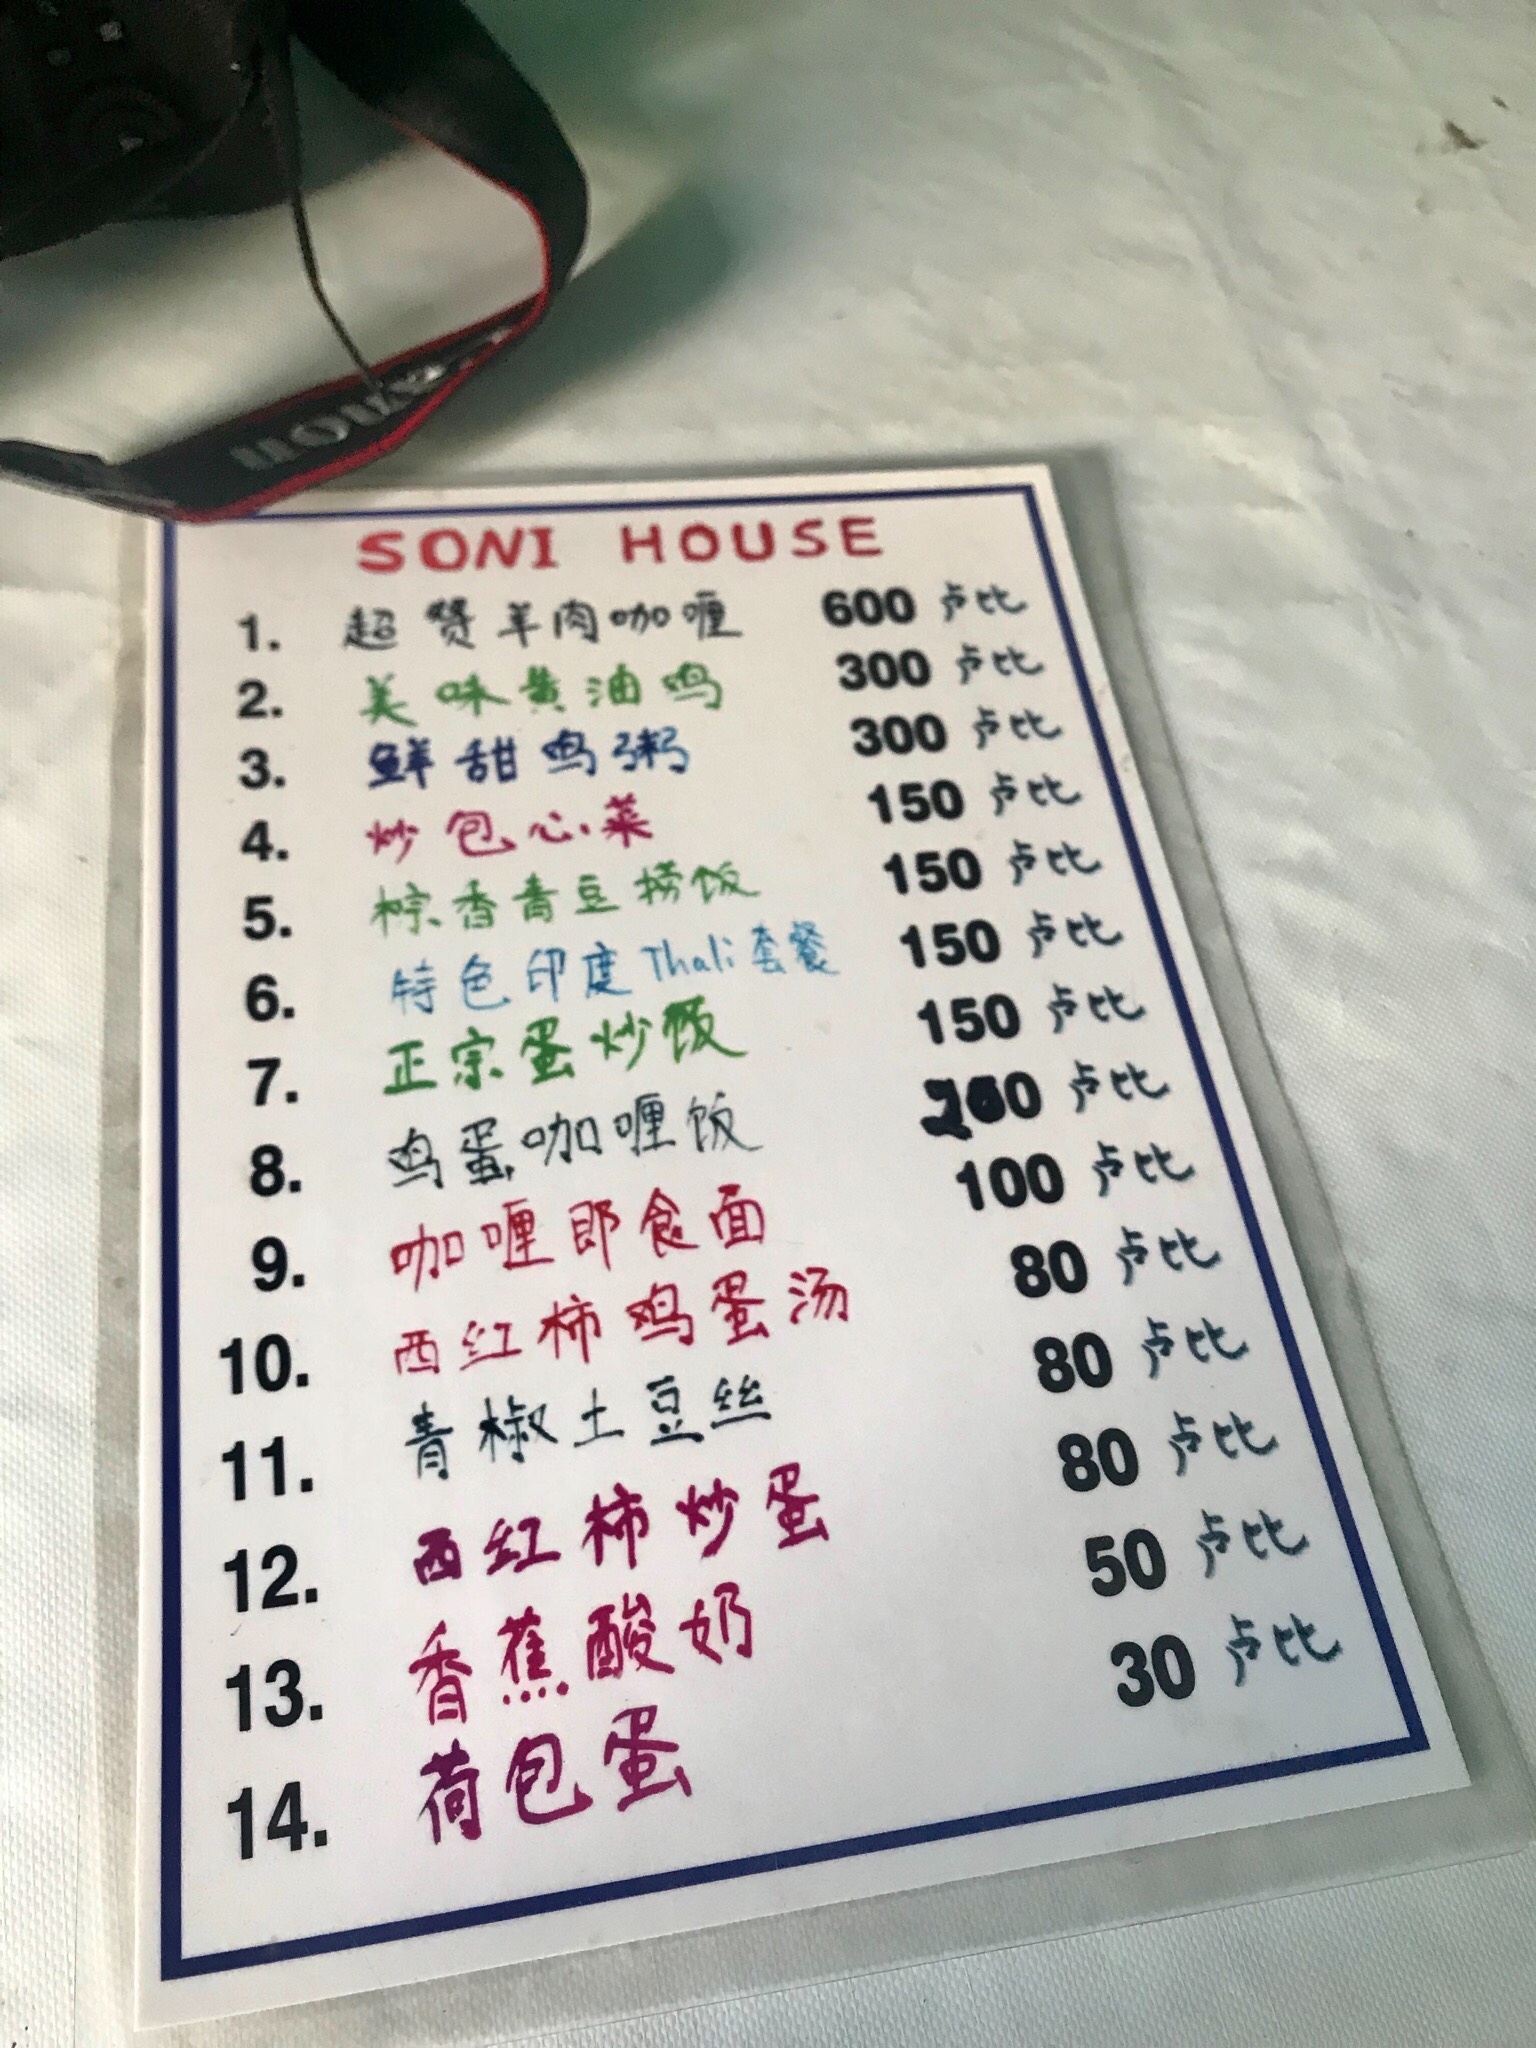 SONI HOUSE
1. 超赞羊肉咖喱 600 卢比
2. 美味黄油鸡 300 卢比
3. 鲜甜鸡粥 300 卢比
4. 炒包心菜 150 卢比
5. 棕香青豆捞饭 150 卢比
6. 特色印度Thali套餐 150 卢比
7. 正宗蛋炒饭 150 卢比
8. 鸡蛋咖喱饭 卢比
9. 咖喱即食面 100 卢比
10. 西红柿鸡蛋汤 80 卢比
11. 青椒土豆丝 80 卢比
12. 西红柿炒蛋 80 卢比
13. 香蕉酸奶 50 卢比
14. 荷包蛋 30 卢比